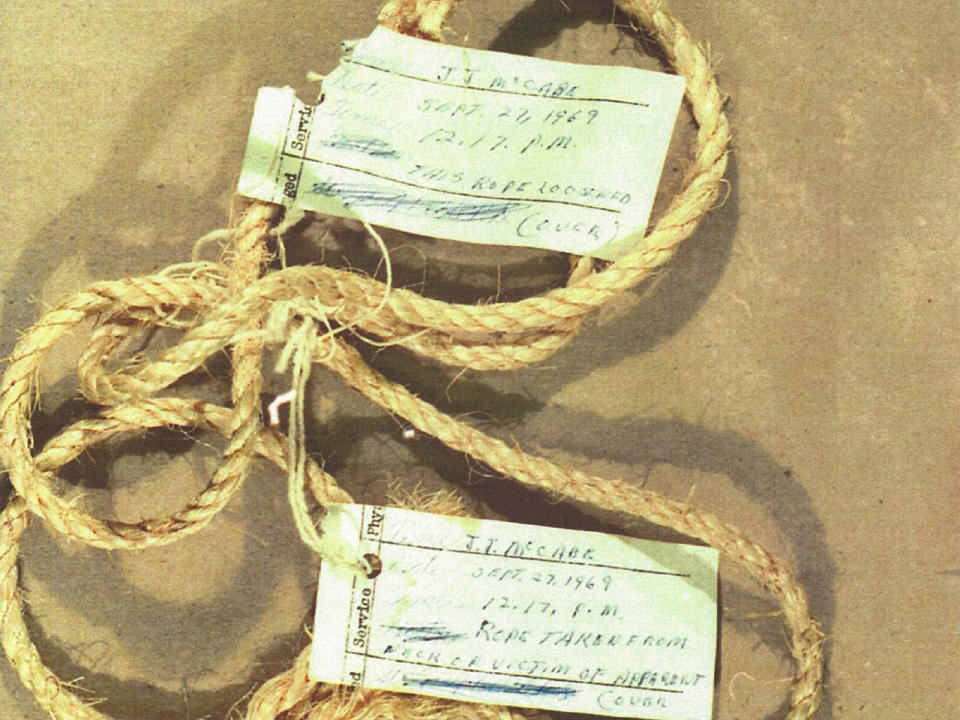 J.J. McCABE
Date SEPT. 27, 1969
Time 12.17. P.M.
THIS ROPE LOOSENED
(OVER)
Service
ged
J.J. McCABE
Date SEPT. 27, 1969
12.17. P.M.
ROPE TAKEN FROM
NECK OF VICTIM OF APPARENT
(OVER
Phys
Service